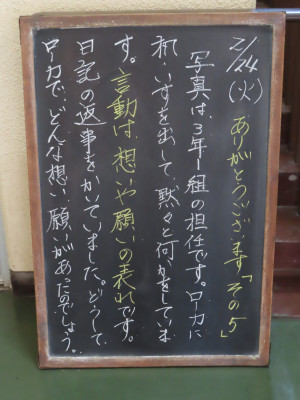 2/24(火)
ありがとうございます「その5」
写真は、3年1組の担任です。ロカに
机・いすを出して、黙々と何かをしていま
す。言動は、想いや願いの表れです。
日記の返事をかいていました。どうして
ロカで、どんな想い、願いがあったのでしょう。